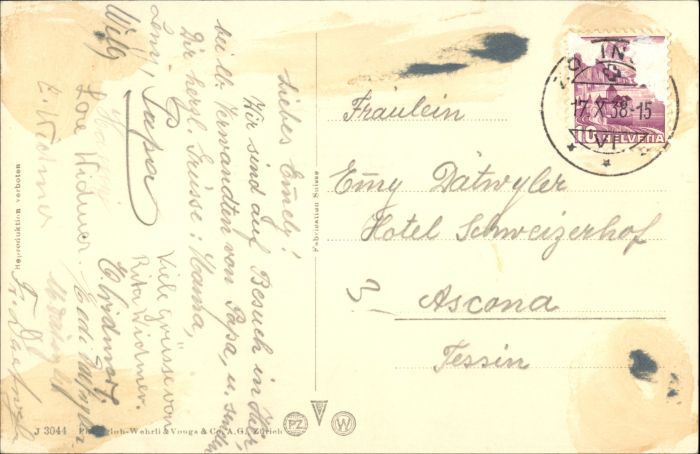 Liebes Emely!
Wir sind auf Besuch in
bei lb. Verwandten von Papa, u. senden
Dir herzl. Grüsse: Mama,
Leny, Papa
Willy
Viele Grüsse von
Rita Widmer.
Lore Widmer.
E. Widmer
Fräulein
Emy Dätwyler
Hotel Schweizerhof
Ascona
Tessin
17.X.38-15
VI
10 HELVETIA
Reproduktion verboten
Fabrication Suisse
J 3044 Photoglob-Wehrli & Vouga & Co. A.G. Zürich
PZ
W